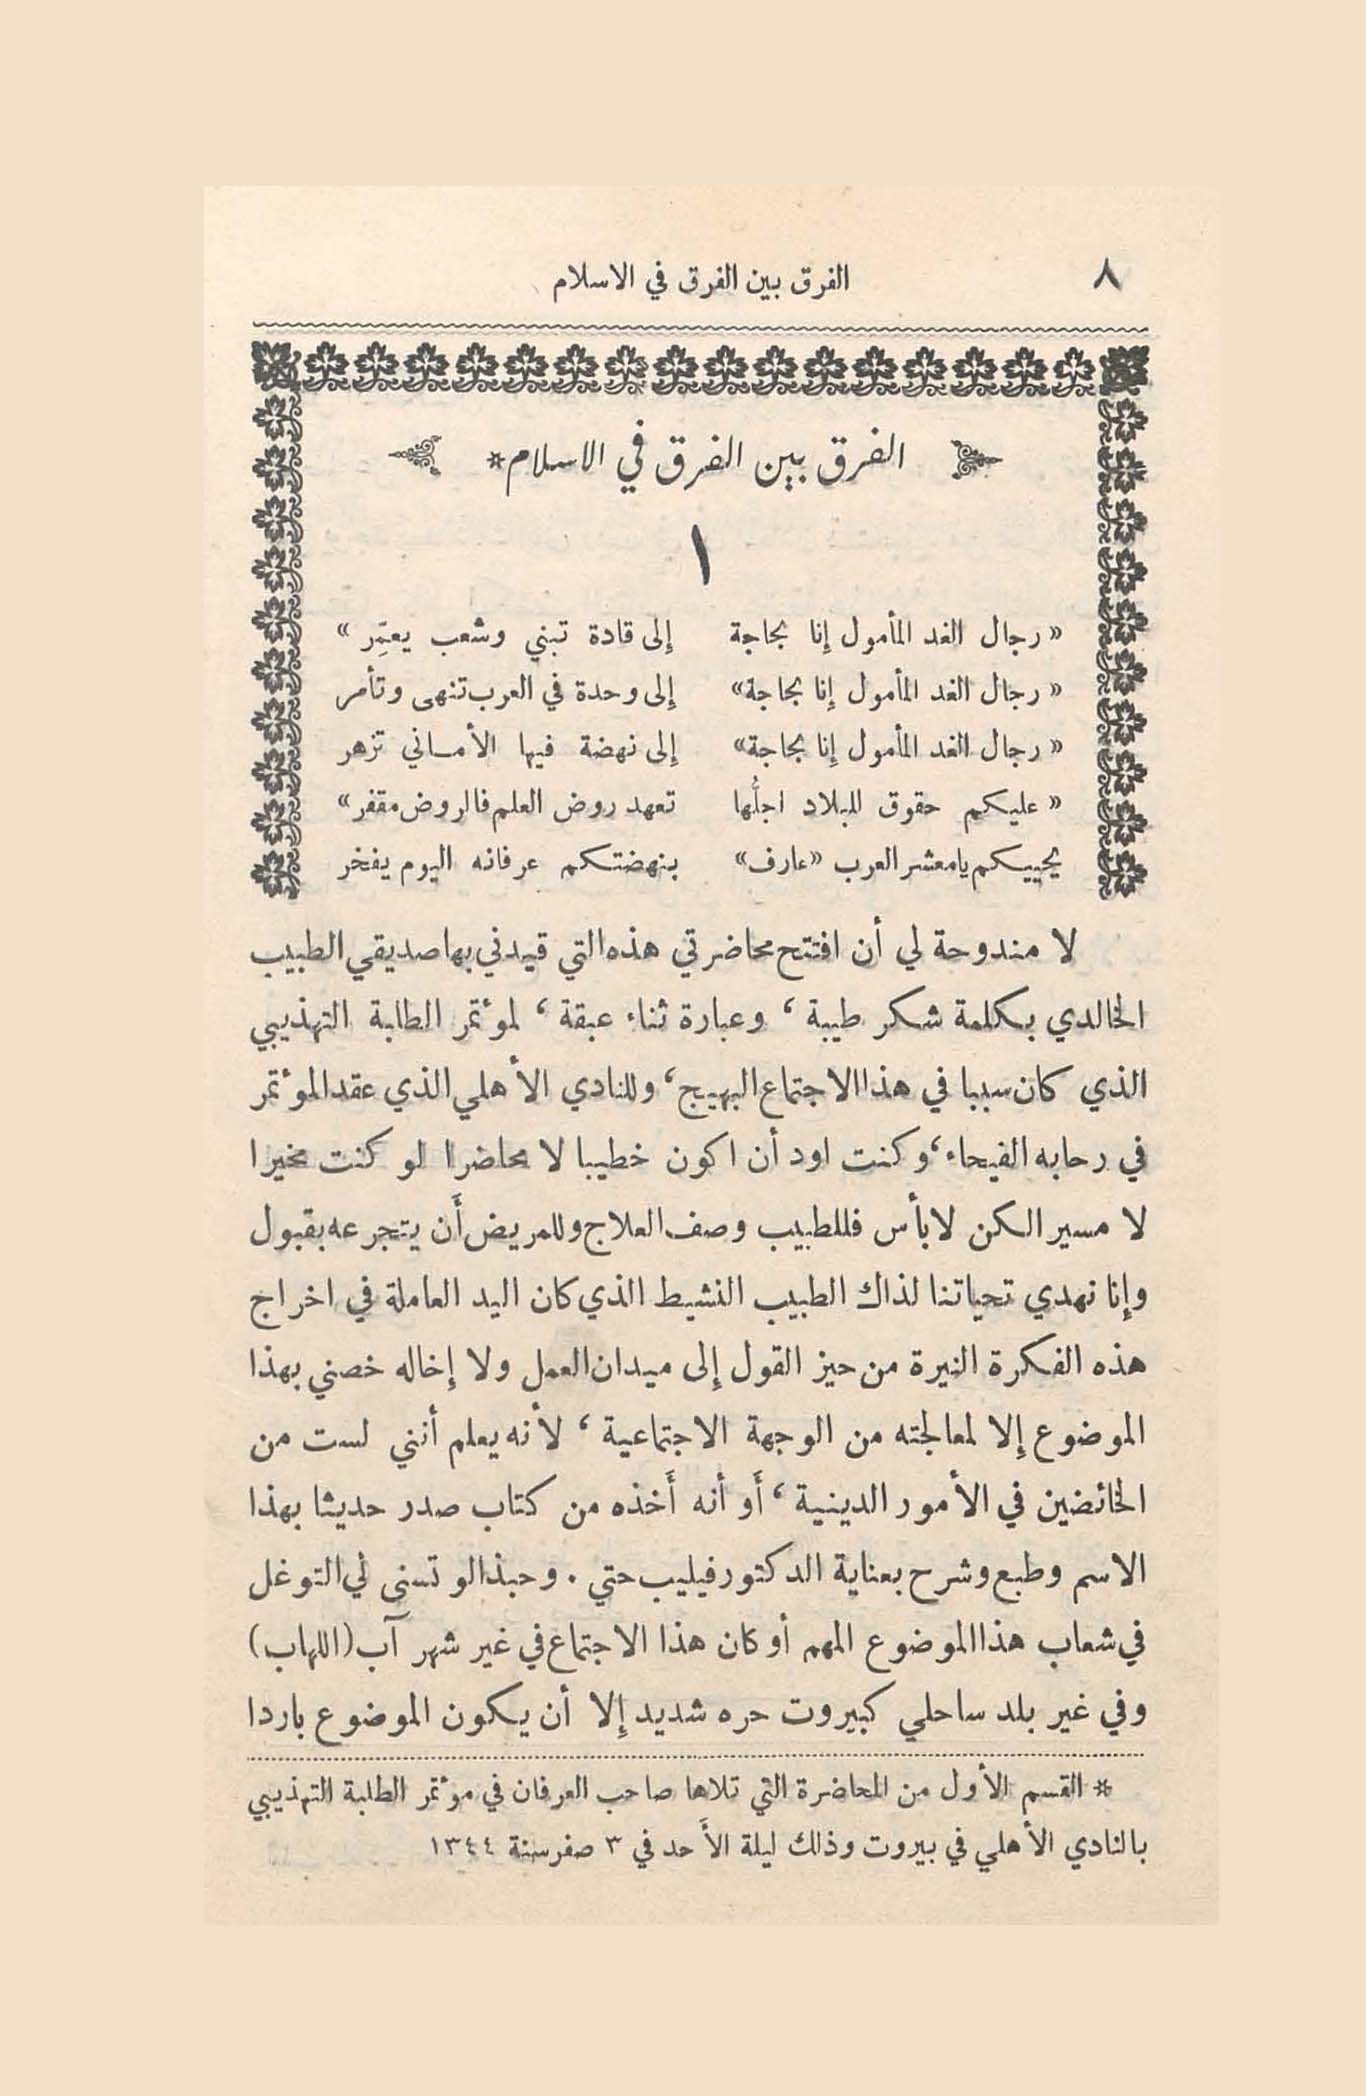 ٨ الفرق بين الفرق في الاسلام
الفرق بين الفرق في الاسلام*
١
« رجال الغد المأمول إنا بحاجة إلى قادة تبني وشعب يعمّر »
« رجال الغد المأمول إنا بحاجة» إلى وحدة في العرب تنهى وتأمر
« رجال الغد المأمول إنا بحاجة» إلى نهضة فيها الأماني تزهر
« عليكم حقوق للبلاد اجلُّها تعهد روض العلم فالروض مقفر»
يحييكم يا معشر العرب «عارف» بنهضتكم عرفانه اليوم يفخر
لا مندوحة لي أن افتتح محاضرتي هذه التي قيدني بها صديقي الطبيب
الخالدي بكلمة شكر طيبة ، وعبارة ثناء عبقة ، لمؤتمر الطلبة التهذيبي
الذي كان سببا في هذا الاجتماع البهيج، وللنادي الأهلي الذي عقد المؤتمر
في رحابه الفيحاء، وكنت اود أن اكون خطيبا لا محاضرا لو كنت مخيرا
لا مسيرا لكن لا بأس فللطبيب وصف العلاج وللمريض أَن يتجرعه بقبول
وإنا نهدي تحياتنا لذاك الطبيب النشيط الذي كان اليد العاملة في اخراج
هذه الفكرة النيرة من حيز القول إلى ميدان العمل ولا إخاله خصني بهذا
الموضوع إلا لمعالجته من الوجهة الاجتماعية ، لأنه يعلم أنني لست من
الخائضين في الأمور الدينية ، أَو أنه أَخذه من كتاب صدر حديثا بهذا
الاسم وطبع وشرح بعناية الدكتور فيليب حتي . وحبذا لو تسنى لي التوغل
في شعاب هذا الموضوع المهم أو كان هذا الاجتماع في غير شهر آب (اللهاب)
وفي غير بلد ساحلي كبيروت حره شديد إلا أن يكون الموضوع باردا
* القسم الأول من المحاضرة التي تلاها صاحب العرفان في مؤتمر الطلبة التهذيبي
بالنادي الأهلي في بيروت وذلك ليلة الأَحد في ٣ صفر سنة ١٣٤٤